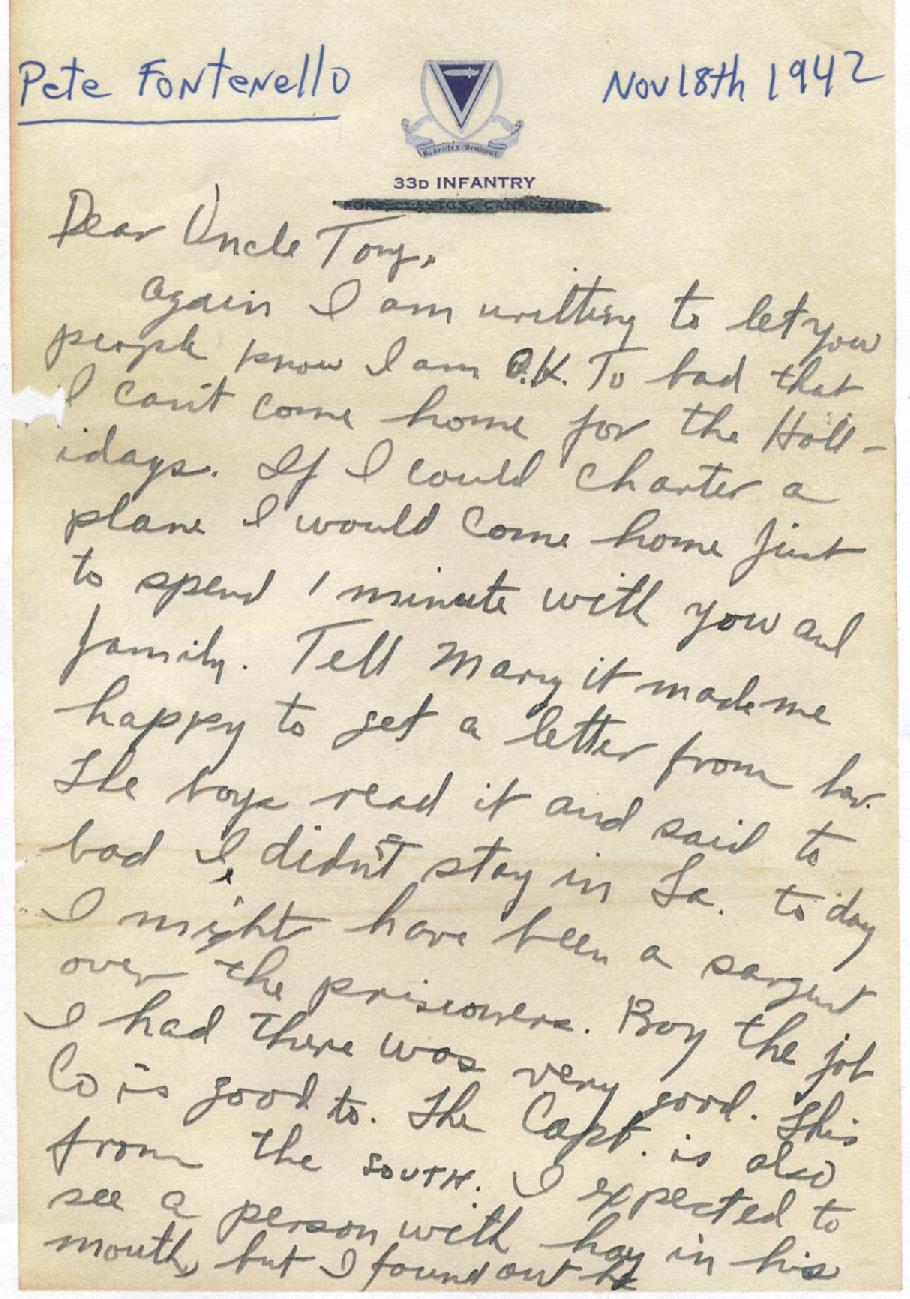 Pete Fontenello
Nov 18th 1942
33D INFANTRY
Dear Uncle Tony,
Again I am writting to let you
people know I am O.K. To bad that
I can't come home for the Holl-
idays. If I could charter a
plane I would come home just
to spend 1 minute with you and
family. Tell Mary it made me
happy to get a letter from her.
The boys read it and said to
bad I didn't stay in La. to day
I might have been a sargent
over the prisioners. Boy the job
I had there was very good. This
Co is good to. The Capt. is also
from the SOUTH. I expected to
see a person with hay in his
mouth, but I found out